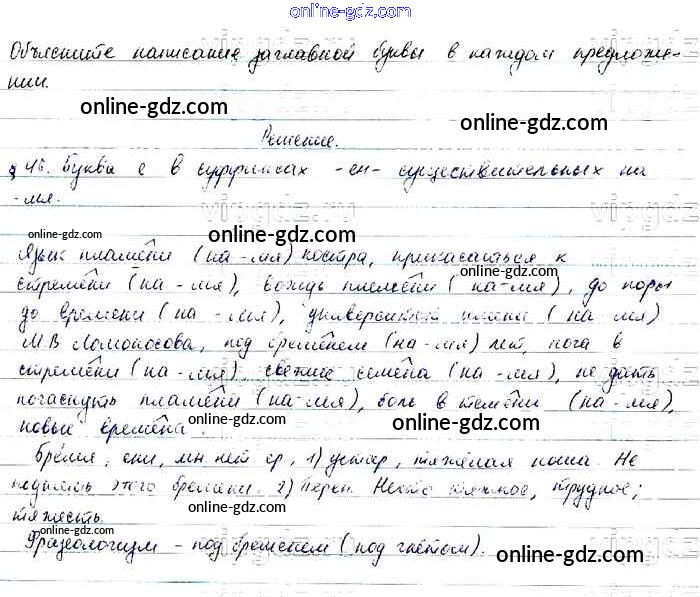 online-gdz.com
Объясните написание заглавной буквы в каждом предложе-
нии.
online-gdz.com
online-gdz.com
Решение.
§ 46. Буква е в суффиксах -ен- существительных на
-мя.
vipgdz.ru
online-gdz.com
online-gdz.com
Язык пламени (на -мя) костра, прикасаться к
online-gdz.com
стремени (на -мя), вождь племени (на -мя), до поры
до времени (на -мя), университет имени (на -мя)
М.В Ломоносова, под бременем (на -мя) лет, нога в
online-gdz.com
online-gdz.com
стремени (на -мя), свежие семена (на -мя), не дать
погаснуть пламени (на -мя), боль в темени (на -мя),
online-gdz.com
online-gdz.com
новые времена.
Бремя, ени, мн. нет ср, 1) устар, тяжёлая ноша. Не
подымешь этого бремени. 2) Перен. Нечто тяжкое, трудное;
тяжесть.
online-gdz.com
Фразеологизм - под бременем (под гнётом).
online-gdz.com
online-gdz.com